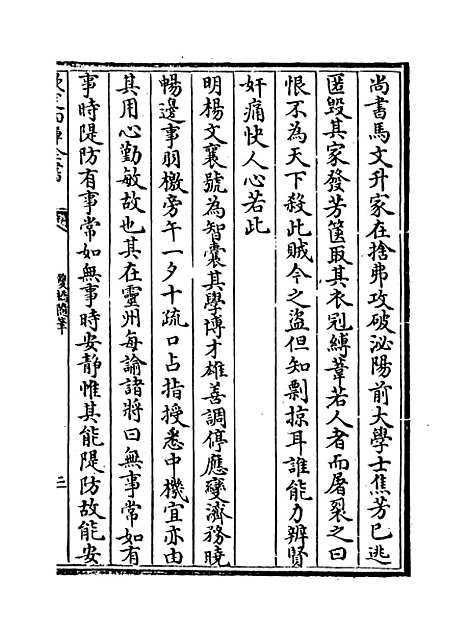 尚書馬文升家在捨弗攻破泌陽前大學士焦芳已逃
匿毀其家發芳篋取其衣冠縛葦若人者而屠裂之曰
恨不為天下殺此賊今之盜但知剽掠耳誰能力辨賢
奸痛快人心若此
明楊文襄號為智囊其學博才雄善調停應變濟務曉
暢邊事羽檄旁午一夕十疏口占指授悉中機宜亦由
其用心勤敏故也其在靈州每諭諸將曰無事常如有
事時隄防有事常如無事時安靜惟其能隄防故能安
欽定四庫全書
隨筆
三